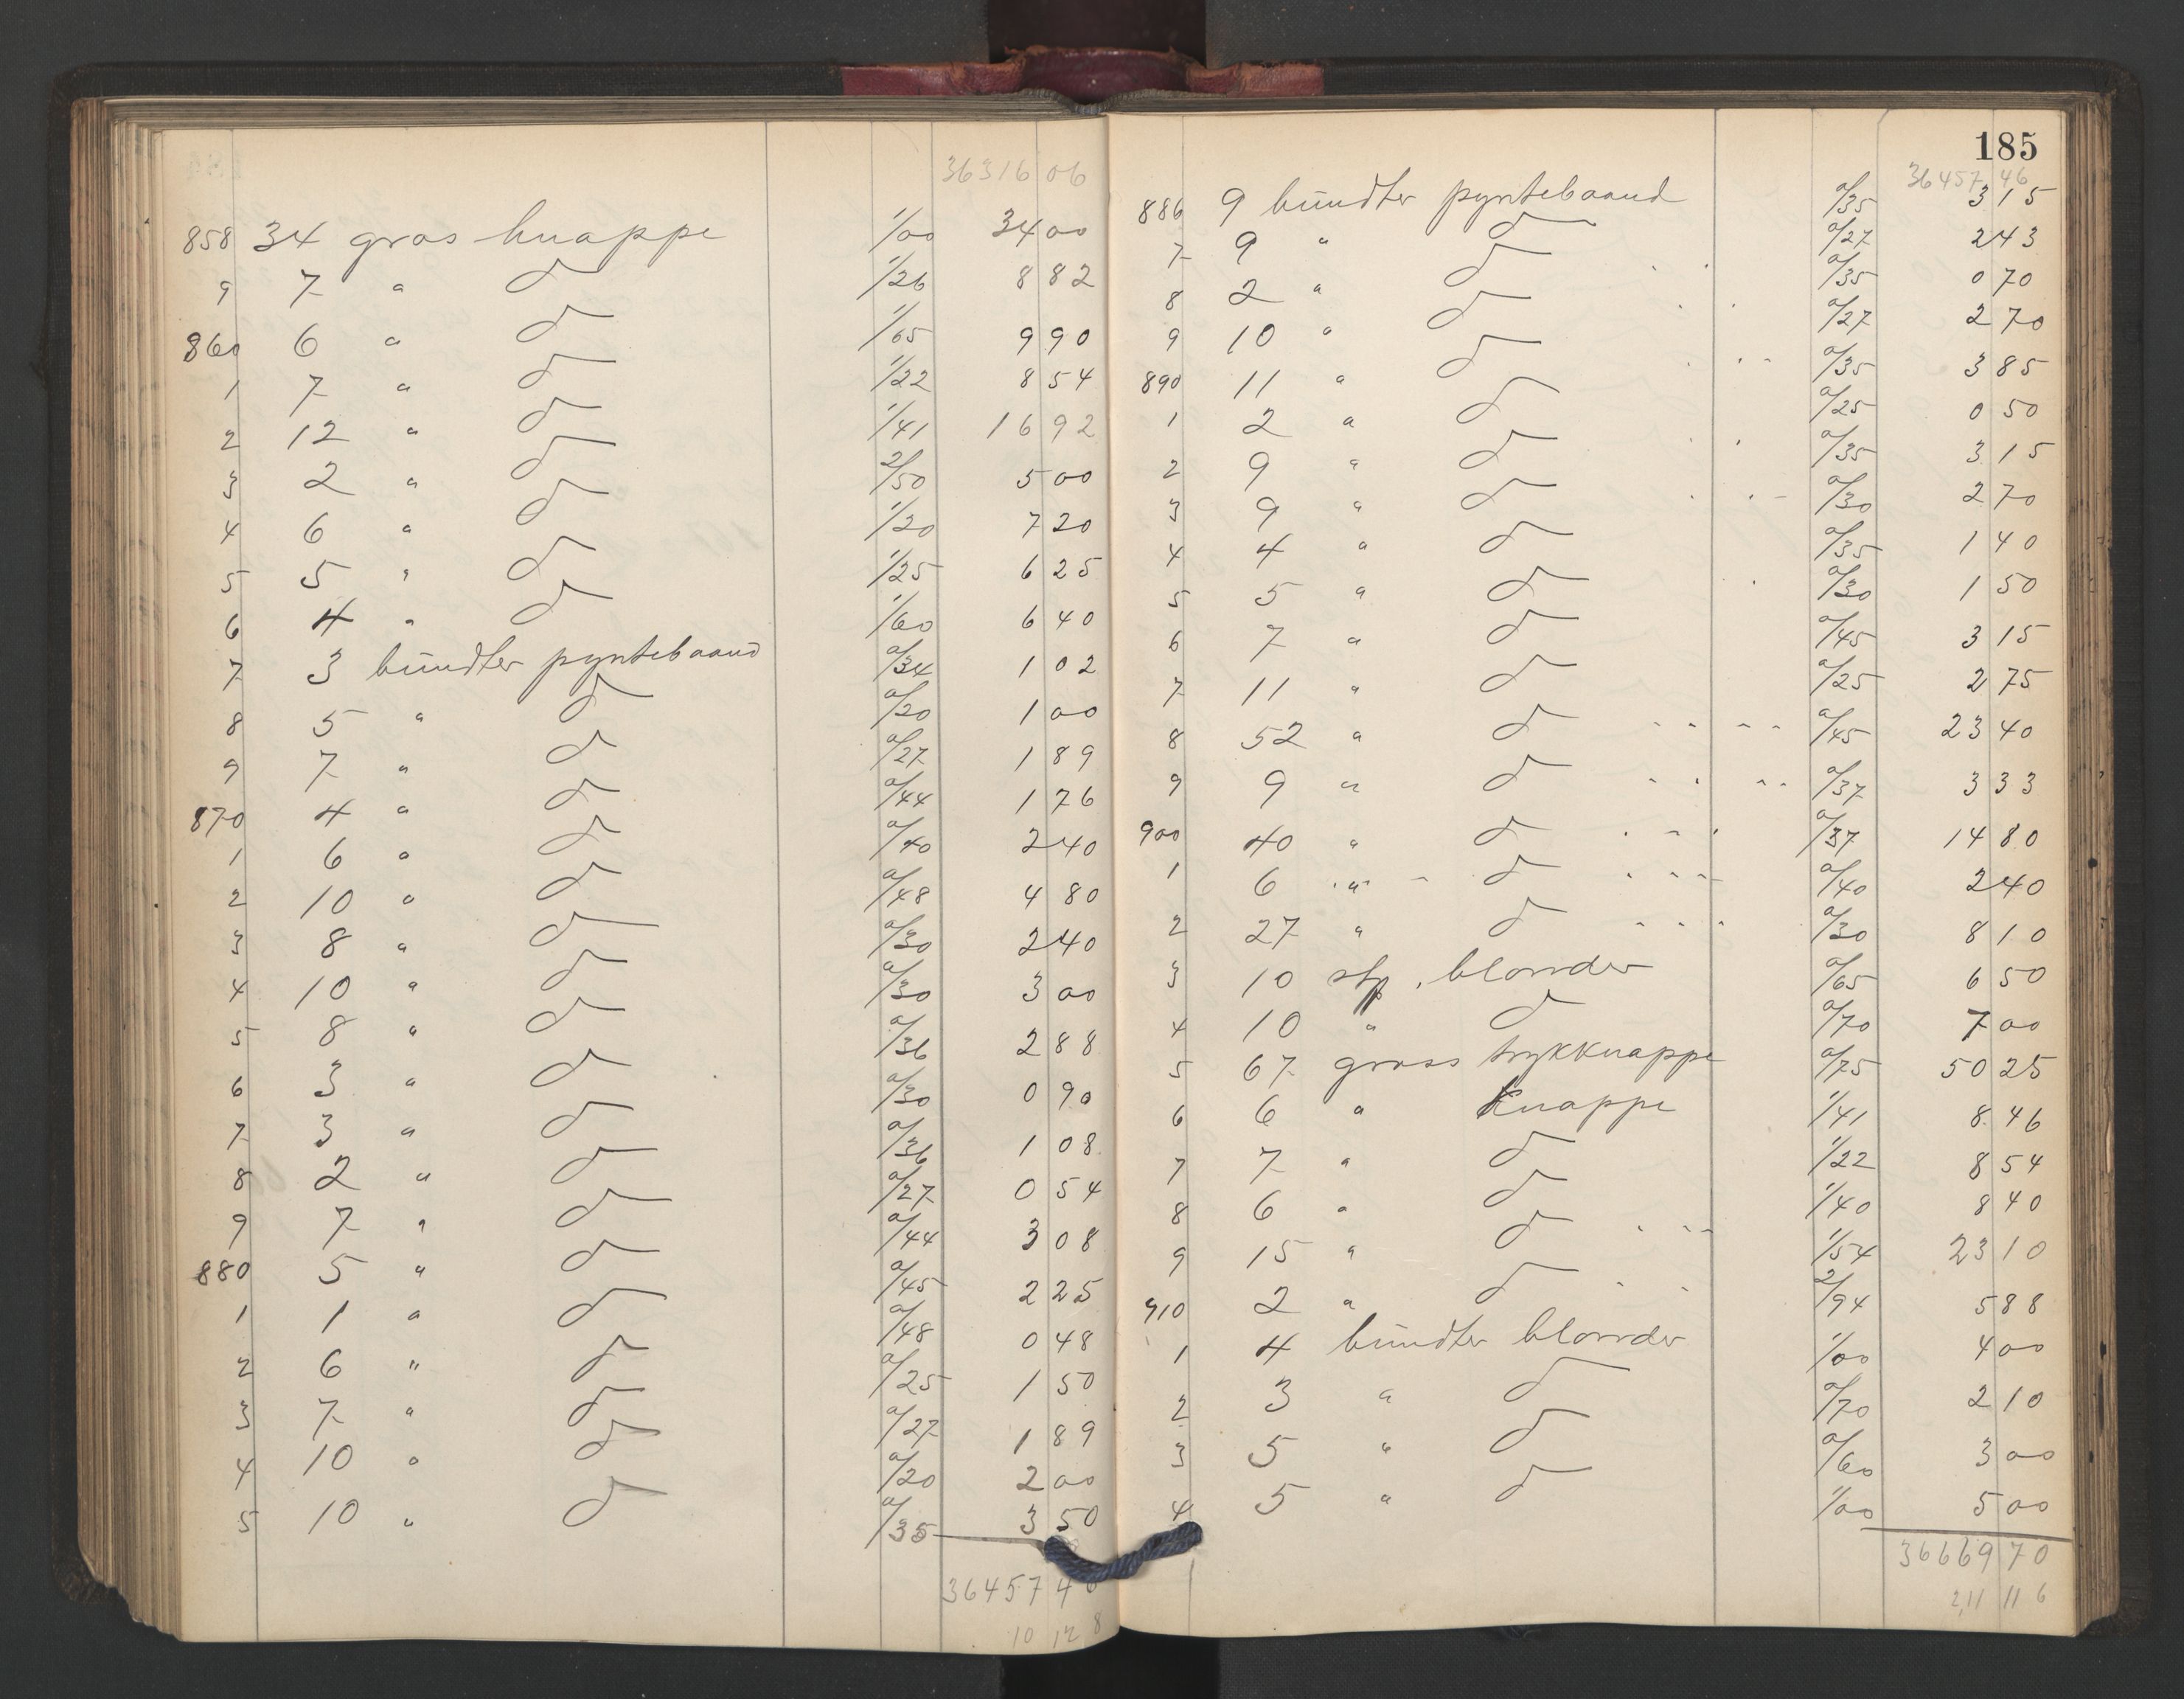 36316 06
858 34 gros knappe 1/00 34 00
9 7 " d 1/26 8 82
860 6 " d 1/65 9 90
1 7 " d 1/22 8 54
2 12 " d 1/41 16 92
3 2 " d 2/50 5 00
4 6 " d 1/20 7 20
5 5 " d 1/25 6 25
6 4 " d 1/60 6 40
7 3 bundter pyntebaand 0/34 1 02
8 5 " d 0/20 1 00
9 7 " d 0/27 1 89
870 4 " d 0/44 1 76
1 6 " d 0/40 2 40
2 10 " d 0/48 4 80
3 8 " d 0/30 2 40
4 10 " d 0/30 3 00
5 8 " d 0/36 2 88
6 3 " d 0/30 0 90
7 3 " d 0/36 1 08
8 2 " d 0/27 0 54
9 7 " d 0/44 3 08
880 5 " d 0/45 2 25
1 1 " d 0/48 0 48
2 6 " d 0/25 1 50
3 7 " d 0/27 1 89
4 10 " d 0/20 2 00
5 10 " d 0/35 3 50
36457 46
10 12 8
185
36457 46
886 9 bundter pyntebaand 0/35 3 15
7 9 " d 0/27 2 43
8 2 " d 0/35 0 70
9 10 " d 0/27 2 70
890 11 " d 0/35 3 85
1 2 " d 0/25 0 50
2 9 " d 0/35 3 15
3 9 " d 0/30 2 70
4 4 " d 0/35 1 40
5 5 " d 0/30 1 50
6 7 " d 0/45 3 15
7 11 " d 0/25 2 75
8 52 " d 0/45 23 40
9 9 " d 0/37 3 33
900 40 " d 0/37 14 80
1 6 " d 0/40 2 40
2 27 " d 0/30 8 10
3 10 stp. blonder 0/65 6 50
4 10 " d 0/70 7 00
5 67 gross trykknappe 0/75 50 25
6 6 " Knappe 1/41 8 46
7 7 " d 1/22 8 54
8 6 " d 1/40 8 40
9 15 " d 1/54 23 10
910 2 " d 2/94 5 88
1 4 bundter blonder 1/00 4 00
2 3 " d 0/70 2 10
3 5 " d 0/60 3 00
4 5 " d 1/00 5 00
36669 70
2,11 11 6